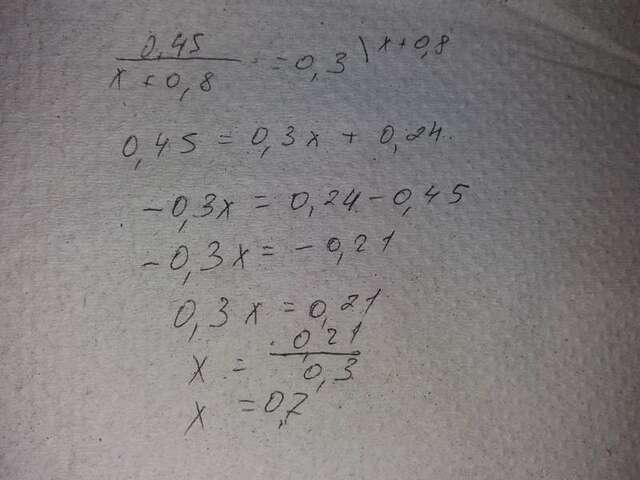 0,45 / x + 0,8 = 0,3 \ x + 0,8
0,45 = 0,3x + 0,24
-0,3x = 0,24 - 0,45
-0,3x = -0,21
0,3x = 0,21
x = 0,21 / 0,3
x = 0,7